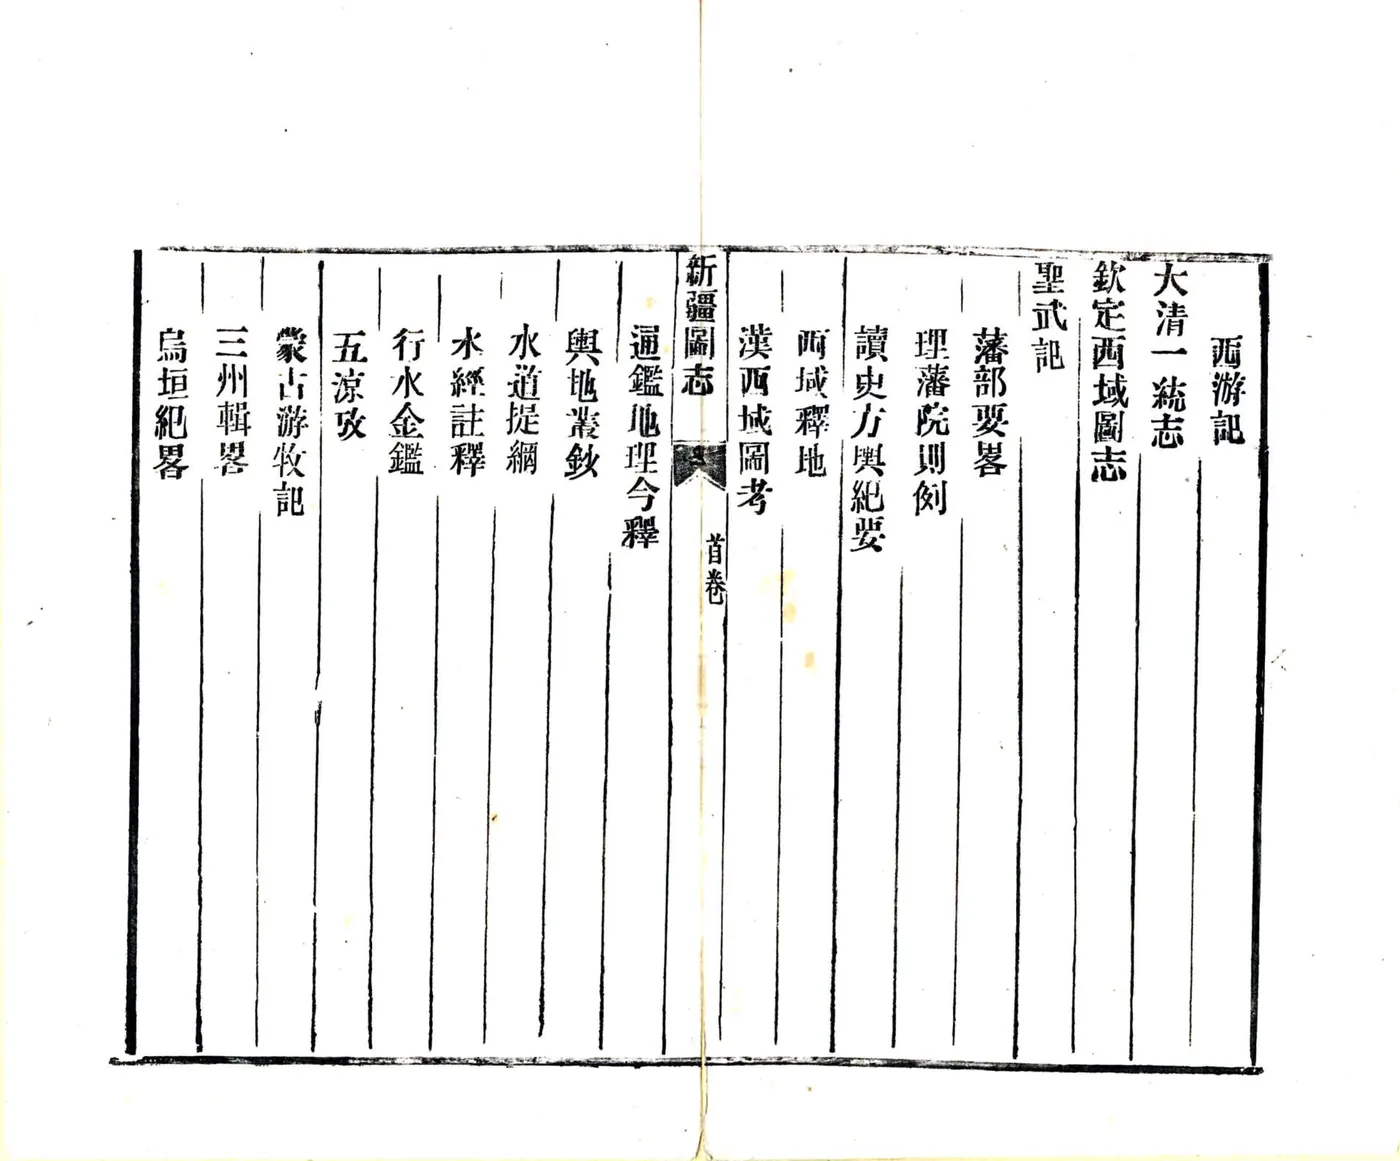 西游記
大清一統志
欽定西域圖志
聖武記
藩部要畧
理藩院則例
讀史方輿紀要
西域釋地
漢西域圖考
新疆圖志
首卷
通鑑地理今釋
輿地叢鈔
水道提綱
水經註釋
行水金鑑
五涼攷
蒙古游牧記
三州輯畧
烏垣紀畧